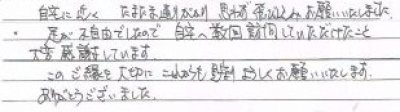 自宅に近く たまたま通りかかり 思わず飛び込みお願いいたしました。
・足が不自由でしたので 自宅へ数回訪問していただけたこと
大変感謝しています。
このご縁を大切に これからも よろしくお願いいたします。
ありがとうございました。